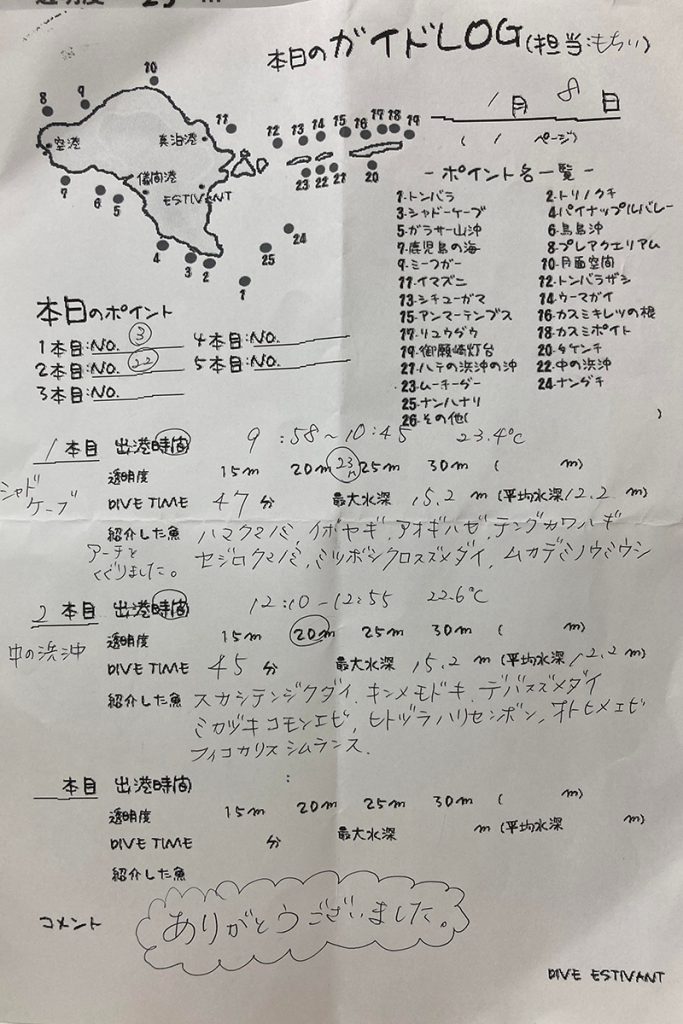 本日のガイドLOG(担当:もちぃ)
1月 8日
(1ページ)
10
8 9
空港
真泊港
儀間港
ESTIVANT
11 12 13 14 15 16 17 18 19
23 22 21 20
7 6 5
4 3 2 1
25 24
- ポイント名一覧 -
1.トンバラ 2.トリノクチ
3.シャドーケーブ 4.パイナップルバレー
5.ガラサー山沖 6.鳥島沖
7.鹿児島の海 8.プレアクエリアム
9.ミーフガー 10.月面空間
11.イマズニ 12.トンバラザシ
13.シチューガマ 14.ウーマガイ
15.アンマーテンブス 16.カスミキレツの根
17.リュウダウ 18.カスミポイト
19.御願崎灯台 20.タケンチ
21.ハテの浜沖の沖 22.中の浜沖
23.ムーチーダー 24.ナンダキ
25.ナンハナリ
26.その他( )
本日のポイント
1本目:NO. 3 4本目:NO.
2本目:NO. 22 5本目:NO.
3本目:NO.
1本目 出港時間 9:58~10:45 23.4℃
シャドーケーブ
透明度 15m 20m 23m 25m 30m ( m)
DIVE TIME 47分 最大水深 15.2m(平均水深12.2m)
紹介した魚 ハマクマノミ,イボヤギ,アオギハゼ,テングカワハギ
セジロクマノミ,ミツボシクロスズメダイ,ムカデミノウミウシ
アーチをくぐりました。
2本目 出港時間 12:10-12:55 22.6℃
中の浜沖
透明度 15m 20m 25m 30m ( m)
DIVE TIME 45分 最大水深 15.2m(平均水深12.2m)
紹介した魚 スカシテンジクダイ,キンメモドキ,デバスズメダイ
ミカヅキコモンエビ,ヒトヅラハリセンボン,オトヒメエビ
フィコカリスシムランス.
本目 出港時間 :
透明度 15m 20m 25m 30m ( m)
DIVE TIME 分 最大水深 m(平均水深 m)
紹介した魚
コメント ありがとうございました。
DIVE ESTIVANT